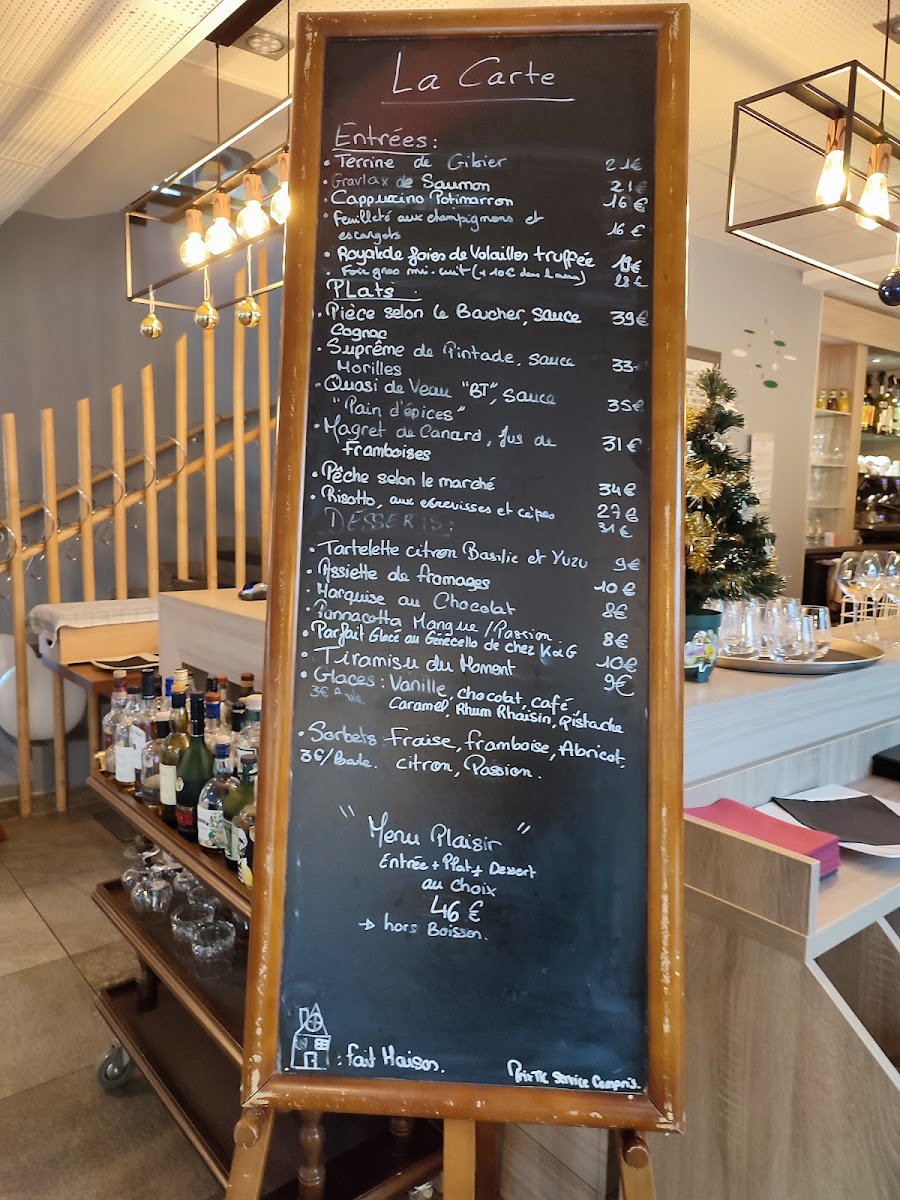 La Carte
Entrées:
• Terrine de Gibier 21€
• Gravlax de Saumon 21€
• Cappuccino Potimarron 16€
• Feuilleté aux champignons et
escargots 16€
• Royale de foies de Volailles truffée
• Foie gras mi-cuit (+10€ dans le menu) 28€
Plats
• Pièce selon le Boucher, sauce 39€
Cognac
• Suprême de Pintade, sauce 33
Morilles
• Quasi de Veau "BT", sauce
"Pain d'épices" 35€
• Magret de Canard, Jus de 31€
Framboises
• Pêche selon le marché 34€
• Risotto, aux ecrevisses et cèpes 27€
DESSERTS: 31€
• Tartelette citron Basilic et Yuzu 9€
• Assiette de fromages 10€
• Marquise au Chocolat 8€
• Pannacotta Mangue/Passion 8€
• Parfait Glacé au Genecello de chez K&G 10€
• Tiramisu du Moment 9€
• Glaces: Vanille, chocolat, café,
3€ Caramel, Rhum Rhaisin, pistache
• Sorbets Fraise, framboise, Abricot,
3€/Boule. citron, Passion.
" Menu Plaisir "
Entrée + Plat + Dessert
au choix
46€
→ hors Boisson.
: Fait Maison.
Prix TTC Service Compris.